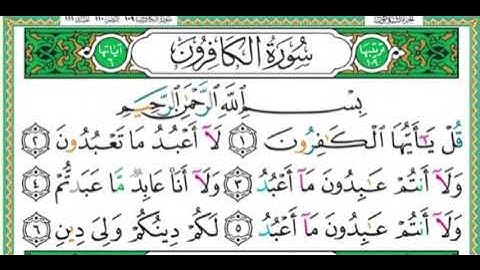 آياتها ٦ سورة الكافرون ترتيبها ١٠٩
بِسْمِ اللَّهِ الرَّحْمَٰنِ الرَّحِيمِ
قُلْ يَٰٓأَيُّهَا الْكَٰفِرُونَ ١ لَآ أَعْبُدُ مَا تَعْبُدُونَ ٢
وَلَآ أَنتُمْ عَٰبِدُونَ مَآ أَعْبُدُ ٣ وَلَآ أَنَا۠ عَابِدٌ مَّا عَبَدتُّمْ ٤
وَلَآ أَنتُمْ عَٰبِدُونَ مَآ أَعْبُدُ ٥ لَكُمْ دِينُكُمْ وَلِىَ دِينِ ٦